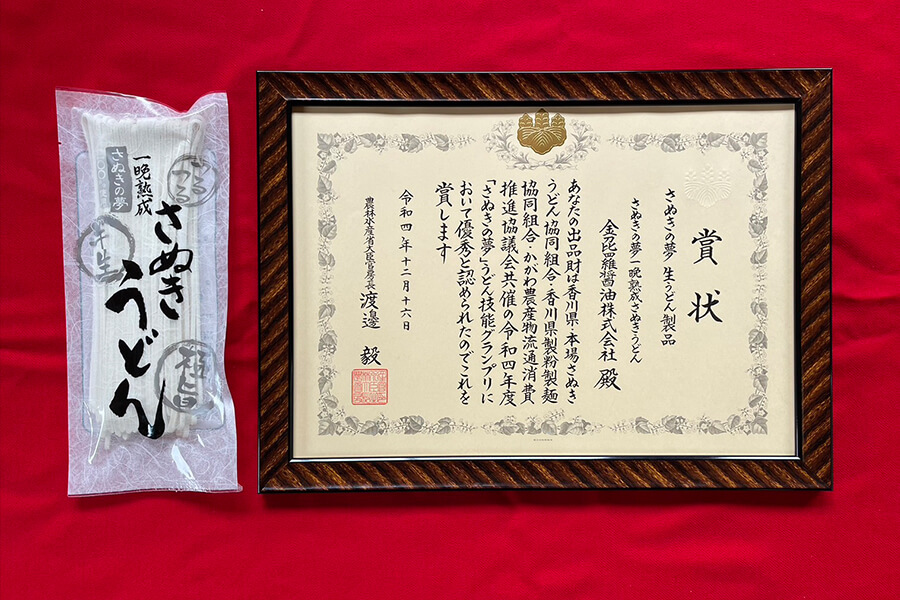 一晩熟成
さぬきの夢
さぬき
うどん
つるつる
半生
賞状
さぬきの夢 生うどん製品
さぬきの夢一晩熟成さぬきうどん
金刀比羅醤油株式会社 殿
あなたの出品財は香川県・本場さぬき
うどん協同組合・香川県製粉製麺
協同組合・かがわ農産物流通消費
推進協議会共催の令和四年度
「さぬきの夢」うどん技能グランプリに
おいて優秀と認められたのでこれを
賞します
令和四年十二月十六日
農林水産省大臣官房長 渡邉 毅